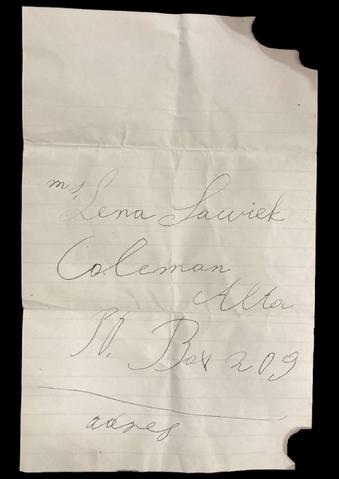 ms. Lena Sawiek
Coleman
Alta
P. Box 209
adres